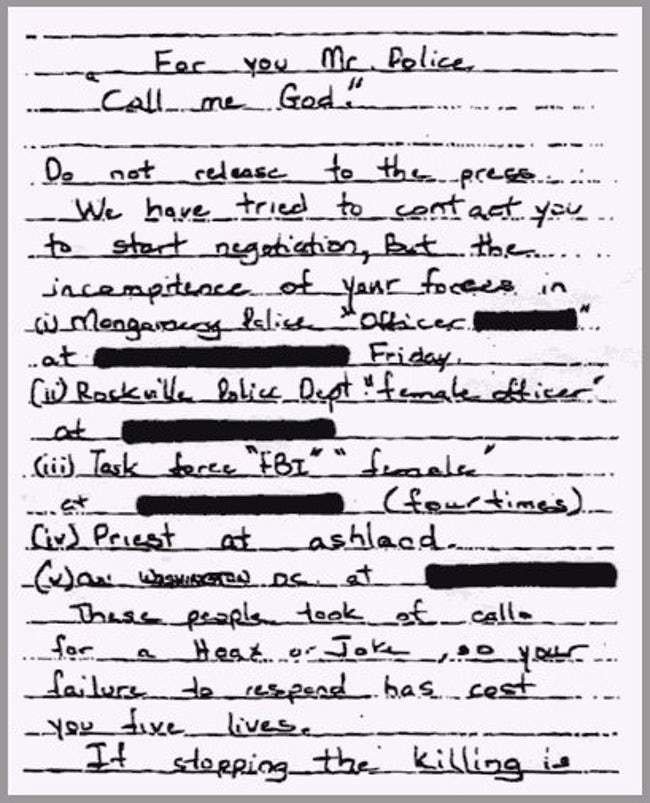 For you Mr. Police.
"Call me God."
Do not release to the press.
We have tried to contact you
to start negotiation, But the
incompitence of your forces in
(i) Mongomery Police "Officer "
at Friday.
(ii) Rockville Police Dept. "female officer"
at
(iii) Task force "FBI" "female"
at (four times)
(iv) Priest at ashland.
(v) WASHINGTON DC at
These people took of calls
for a Hoax or Joke, so your
failure to respond has cost
you five lives.
If stopping the killing is